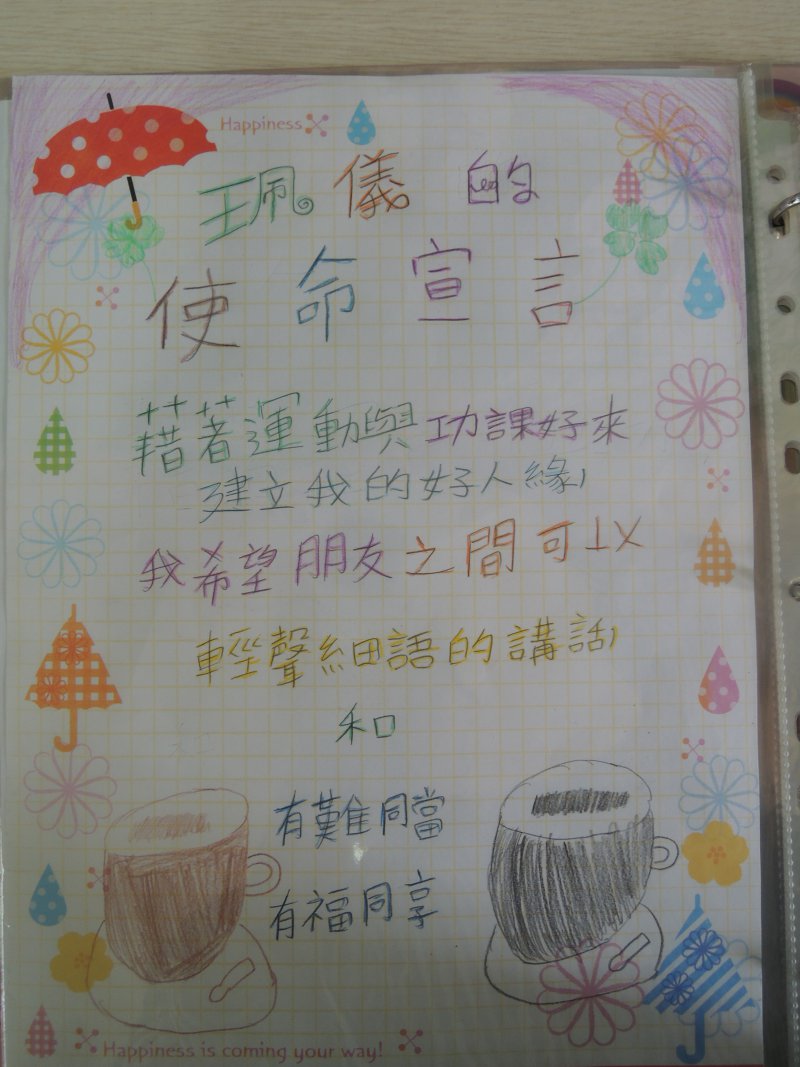 Happiness
珮儀的
使命宣言
藉著運動與功課好來
建立我的好人緣,
我希望朋友之間可以
輕聲細語的講話,
和
有難同當
有福同享
Happiness is coming your way!